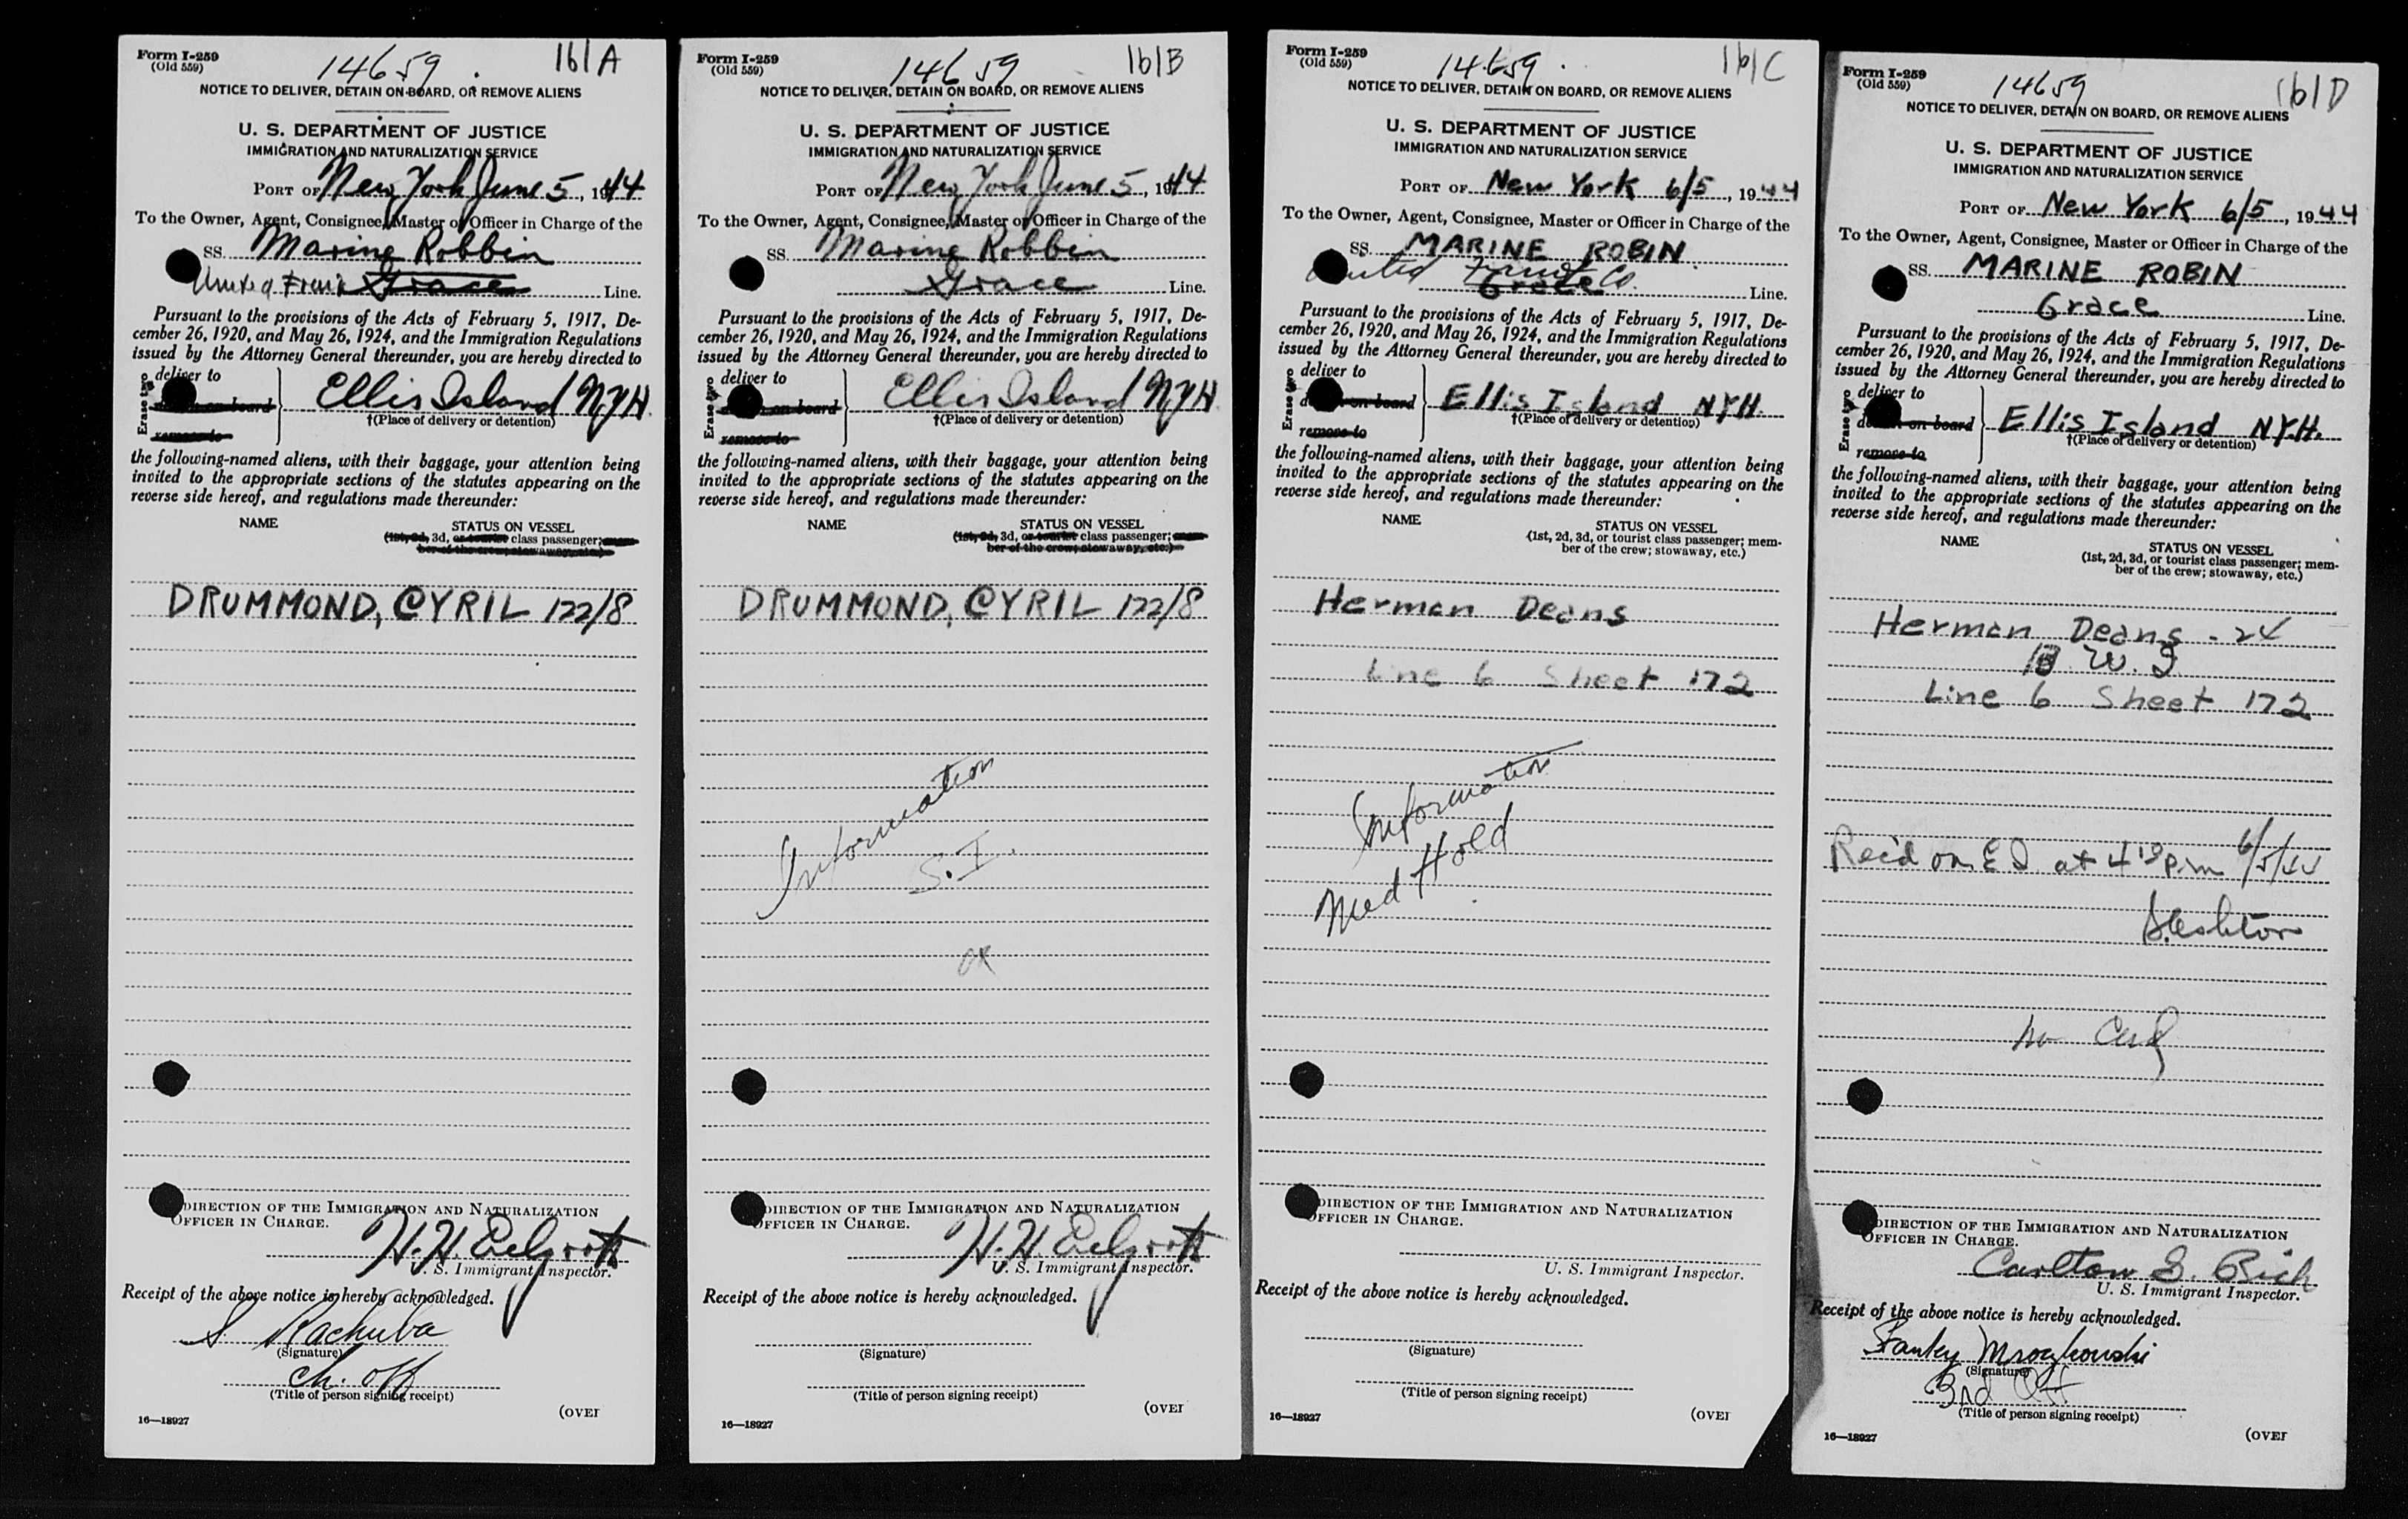 Form I-259
(Old 559)
14659
161A
NOTICE TO DELIVER, DETAIN ON BOARD, OR REMOVE ALIENS
U. S. DEPARTMENT OF JUSTICE
IMMIGRATION AND NATURALIZATION SERVICE
PORT OF New York June 5, 1944
To the Owner, Agent, Consignee, Master or Officer in Charge of the
SS. Marine Robbin
United Fruit Grace Line.
Pursuant to the provisions of the Acts of February 5, 1917, De-
cember 26, 1920, and May 26, 1924, and the Immigration Regulations
issued by the Attorney General thereunder, you are hereby directed to
Erase two
deliver to
on board
remove to
Ellis Island NYH
†(Place of delivery or detention)
the following-named aliens, with their baggage, your attention being
invited to the appropriate sections of the statutes appearing on the
reverse side hereof, and regulations made thereunder:
NAME
STATUS ON VESSEL
(1st, 2d, 3d, or tourist class passenger; mem-
ber of the crew; stowaway, etc.)
DRUMMOND, CYRIL 122/8
DIRECTION OF THE IMMIGRATION AND NATURALIZATION
OFFICER IN CHARGE.
H. H.
U. S. Immigrant Inspector.
Receipt of the above notice is hereby acknowledged.
S. Rachuba
(Signature)
ch. off
(Title of person signing receipt)
16—18927
(OVER
Form I-259
(Old 559)
14659
161B
NOTICE TO DELIVER, DETAIN ON BOARD, OR REMOVE ALIENS
U. S. DEPARTMENT OF JUSTICE
IMMIGRATION AND NATURALIZATION SERVICE
PORT OF New York June 5, 1944
To the Owner, Agent, Consignee, Master or Officer in Charge of the
SS. Marine Robbin
Grace Line.
Pursuant to the provisions of the Acts of February 5, 1917, De-
cember 26, 1920, and May 26, 1924, and the Immigration Regulations
issued by the Attorney General thereunder, you are hereby directed to
Erase two
deliver to
on board
remove to
Ellis Island NYH
†(Place of delivery or detention)
the following-named aliens, with their baggage, your attention being
invited to the appropriate sections of the statutes appearing on the
reverse side hereof, and regulations made thereunder:
NAME
STATUS ON VESSEL
(1st, 2d, 3d, or tourist class passenger; mem-
ber of the crew; stowaway, etc.)
DRUMMOND, CYRIL 122/8
Information
S. I.
OK
DIRECTION OF THE IMMIGRATION AND NATURALIZATION
OFFICER IN CHARGE.
H. H.
U. S. Immigrant Inspector.
Receipt of the above notice is hereby acknowledged.
(Signature)
(Title of person signing receipt)
16—18927
(OVER
Form I-259
(Old 559)
14659
161C
NOTICE TO DELIVER, DETAIN ON BOARD, OR REMOVE ALIENS
U. S. DEPARTMENT OF JUSTICE
IMMIGRATION AND NATURALIZATION SERVICE
PORT OF New York 6/5, 1944
To the Owner, Agent, Consignee, Master or Officer in Charge of the
SS. MARINE ROBIN
United Fruit Co.
Grace Line.
Pursuant to the provisions of the Acts of February 5, 1917, De-
cember 26, 1920, and May 26, 1924, and the Immigration Regulations
issued by the Attorney General thereunder, you are hereby directed to
Erase two
deliver to
on board
remove to
Ellis Island NYH.
†(Place of delivery or detention)
the following-named aliens, with their baggage, your attention being
invited to the appropriate sections of the statutes appearing on the
reverse side hereof, and regulations made thereunder:
NAME
STATUS ON VESSEL
(1st, 2d, 3d, or tourist class passenger; mem-
ber of the crew; stowaway, etc.)
Herman Deans
Line 6 Sheet 172
Information
Med Hold
DIRECTION OF THE IMMIGRATION AND NATURALIZATION
OFFICER IN CHARGE.
U. S. Immigrant Inspector.
Receipt of the above notice is hereby acknowledged.
(Signature)
(Title of person signing receipt)
16—18927
(OVER
Form I-259
(Old 559)
14659
161D
NOTICE TO DELIVER, DETAIN ON BOARD, OR REMOVE ALIENS
U. S. DEPARTMENT OF JUSTICE
IMMIGRATION AND NATURALIZATION SERVICE
PORT OF New York 6/5, 1944
To the Owner, Agent, Consignee, Master or Officer in Charge of the
SS. MARINE ROBIN
Grace Line.
Pursuant to the provisions of the Acts of February 5, 1917, De-
cember 26, 1920, and May 26, 1924, and the Immigration Regulations
issued by the Attorney General thereunder, you are hereby directed to
Erase two
deliver to
on board
remove to
Ellis Island N.Y.H.
†(Place of delivery or detention)
the following-named aliens, with their baggage, your attention being
invited to the appropriate sections of the statutes appearing on the
reverse side hereof, and regulations made thereunder:
NAME
STATUS ON VESSEL
(1st, 2d, 3d, or tourist class passenger; mem-
ber of the crew; stowaway, etc.)
Herman Deans - 24
B W. I
Line 6 Sheet 172
Rec'd on E I at 4 10 pm 6/5/44
no
DIRECTION OF THE IMMIGRATION AND NATURALIZATION
OFFICER IN CHARGE.
Carlton S. Rich
U. S. Immigrant Inspector.
Receipt of the above notice is hereby acknowledged.
(Signature)
3rd Off
(Title of person signing receipt)
16—18927
(OVER